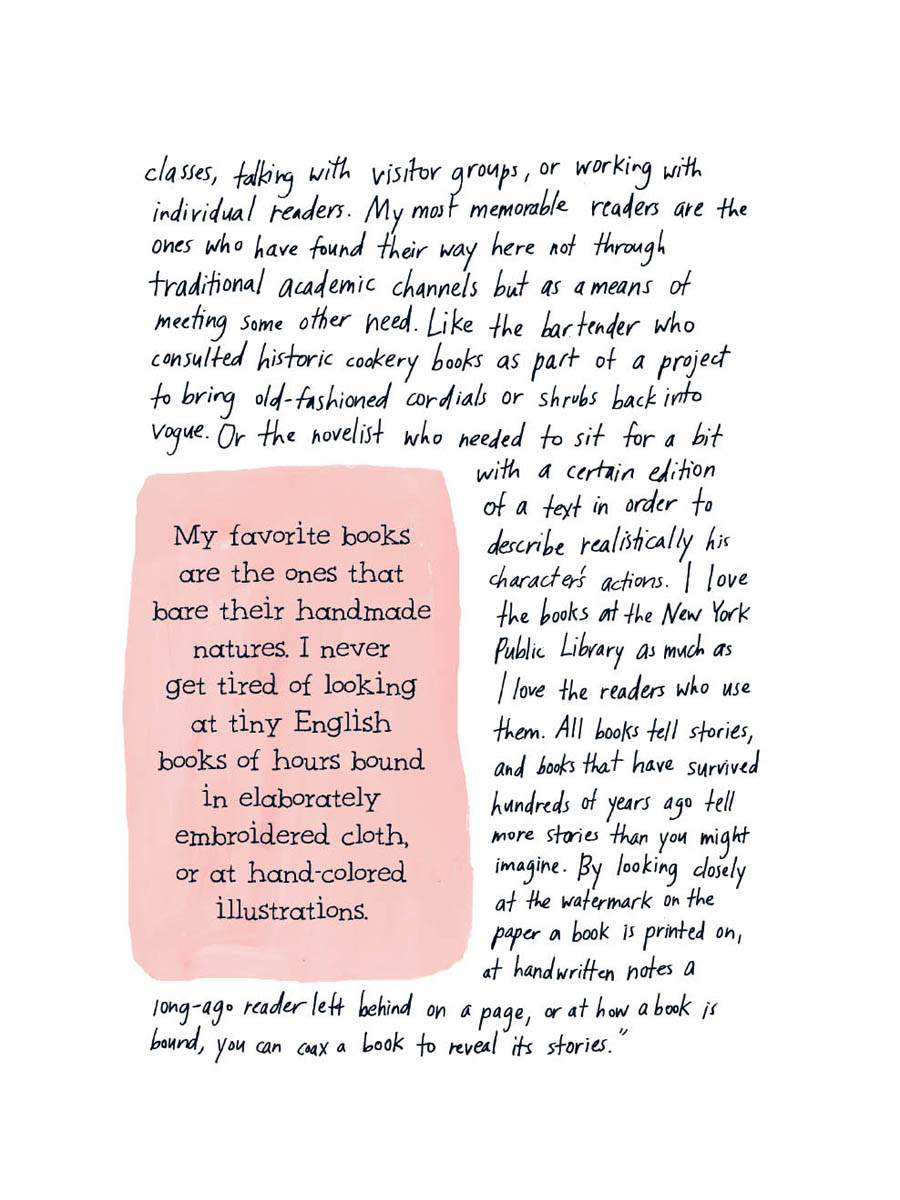 classes, talking with visitor groups, or working with
individual readers. My most memorable readers are the
ones who have found their way here not through
traditional academic channels but as a means of
meeting some other need. Like the bartender who
consulted historic cookery books as part of a project
to bring old-fashioned cordials or shrubs back into
vogue. Or the novelist who needed to sit for a bit
with a certain edition
of a text in order to
describe realistically his
character's actions. I love
the books at the New York
Public Library as much as
I love the readers who use
them. All books tell stories,
and books that have survived
hundreds of years ago tell
more stories than you might
imagine. By looking closely
at the watermark on the
paper a book is printed on,
at handwritten notes a
long-ago reader left behind on a page, or at how a book is
bound, you can coax a book to reveal its stories."
My favorite books
are the ones that
bare their handmade
natures. I never
get tired of looking
at tiny English
books of hours bound
in elaborately
embroidered cloth,
or at hand-colored
illustrations.